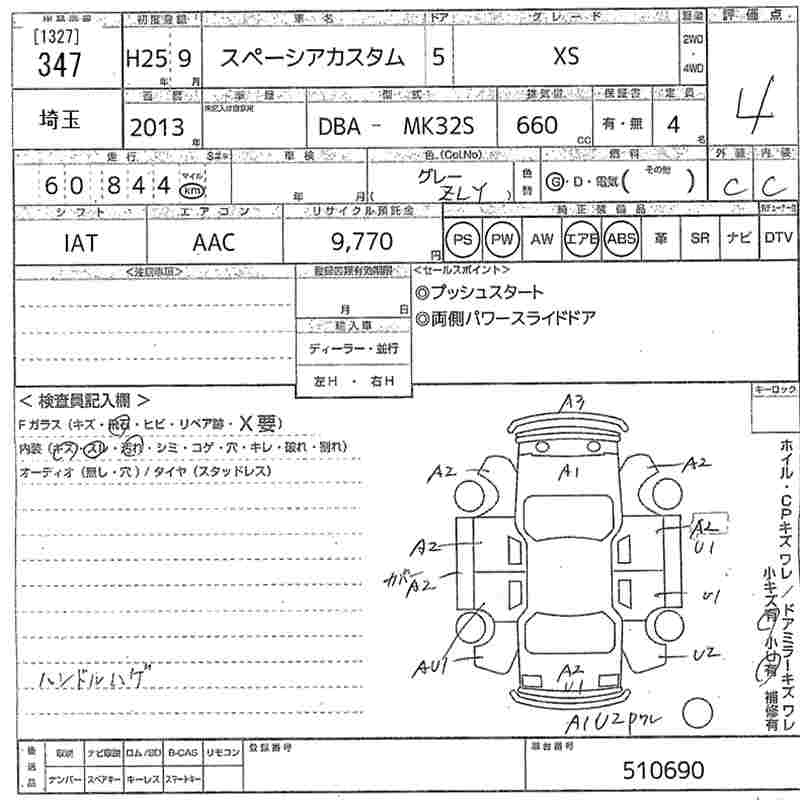 [1327]
347
初度登録
車名
ドア
グレード
装置
評価点
H25 9
年 月
スペーシアカスタム
5
XS
2WD
・
4WD
4
埼玉
2013
年
車歴
型式
排気量
保証書
定員
DBA - MK32S
660
CC
有・無
4
名
走行
車検
色 (Col.No)
燃料
外装
内装
60,844
マイル
km
年 月
グレー
ZLY
( )
色替
G・D・電気( その他 )
C
C
シフト
エアコン
リサイクル預託金
純正装備品
IAT
AAC
9,770
円
PS
PW
AW
エアB
ABS
革
SR
ナビ
DTV
<注意事項>
<セールスポイント>
月 日
◎プッシュスタート
◎両側パワースライドドア
輸入車
ディーラー・並行
左H ・ 右H
< 検査員記入欄 >
キーロック
Fガラス (キズ・飛石・ヒビ・リペア跡・X要)
内装 (キズ・スレ・汚れ・シミ・コゲ・穴・キレ・破れ・割れ)
オーディオ (無し・穴) / タイヤ (スタッドレス)
A3
A1
A2
A2
A2
A2
U1
カバー
A2
U1
AU1
U2
A2
U1
A1U2ワレ
ホイル・CPキズワレ/ドアミラーキズワレ
小キズ有 小U有 補修有
ハンドルハゲ
後送品
取説
ナビ取説
ロム/SD
B-CAS
リモコン
登録番号
車台番号
ナンバー
スペアキー
キーレス
スマートキー
510690